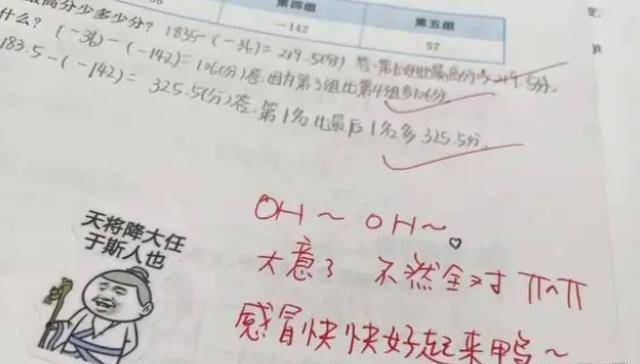 第四组 第五组
-142 57
最高分少多少分? 183.5-(-36)=219.5(分) 答:第
什么? (-36)-(-142)=106(分)答:因为第3组比第4组多106分.
183.5-(-142)= 325.5(分)答:第1名比最后1名多325.5分.
天将降大任
于斯人也
OH~OH~。
大意了 不然全对 π^π
感冒快快好起来鸭~